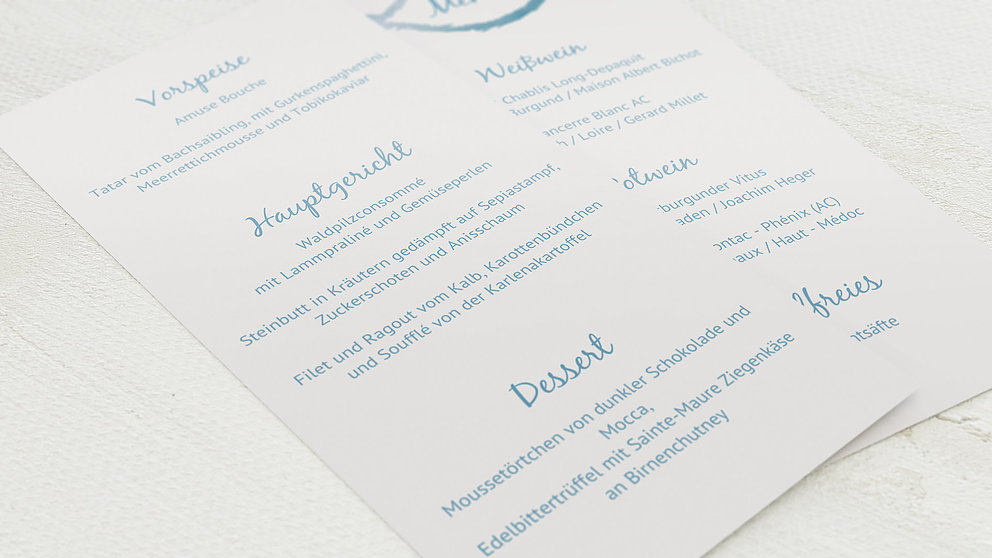 Vorspeise
Amuse Bouche
Tatar vom Bachsaibling, mit Gurkenspaghettini,
Meerrettichmousse und Tobikokaviar
Hauptgericht
Waldpilzconsommé
mit Lammpraliné und Gemüseperlen
Steinbutt in Kräutern gedämpft auf Sepiastampf,
Zuckerschoten und Anisschaum
Filet und Ragout vom Kalb, Karottenbündchen
und Soufflé von der Karlenakartoffel
Dessert
Moussetörtchen von dunkler Schokolade und
Mocca,
Edelbittertrüffel mit Sainte-Maure Ziegenkäse
an Birnenchutney
Weißwein
Chablis Long-Depaquit
Burgund / Maison Albert Bichot
ancerre Blanc AC
/ Loire / Gerard Millet
otwein
burgunder Vitus
aden / Joachim Heger
ontac - Phénix (AC)
aux / Haut - Médoc
freies
tsäfte